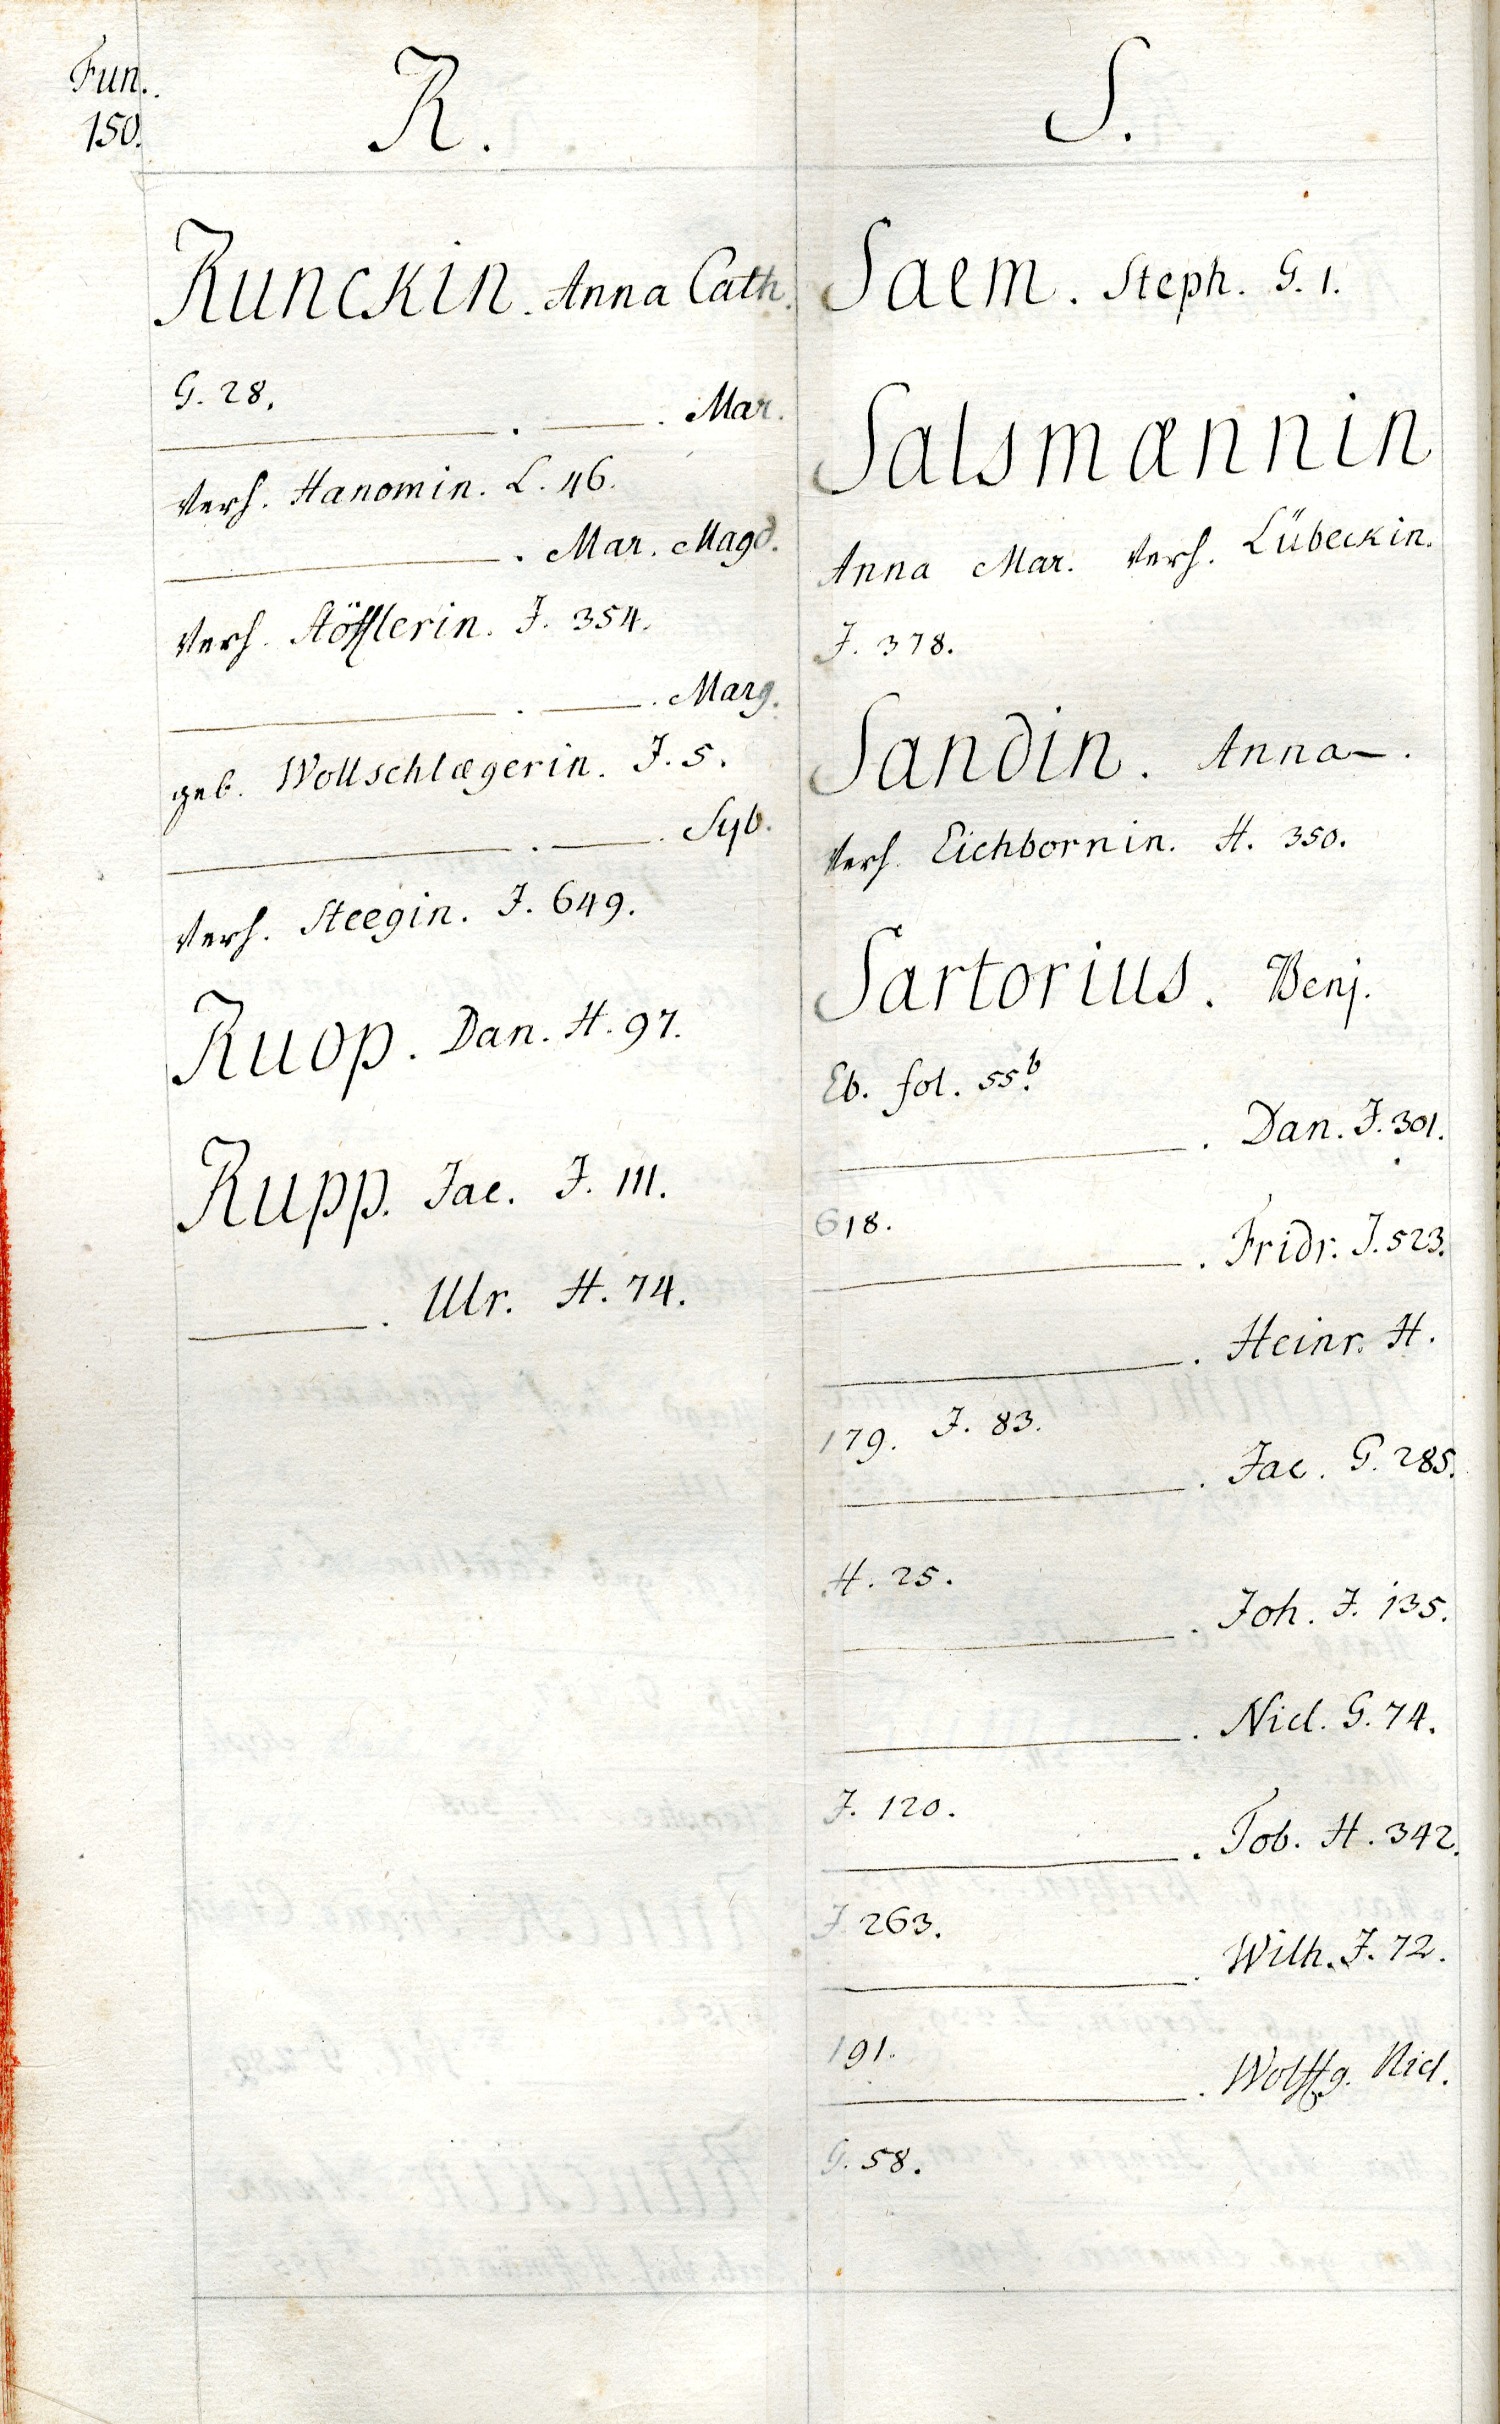 Fun.
150.
R.
Runckin. Anna Cath.
G. 28.
———. ———. Mar.
verh. Hanomin. L. 46.
———. Mar. Magd.
verh. Stöfflerin. J. 354.
———. ———. Marg.
geb. Wollschlægerin. J. 5.
———. ———. Syb.
verh. Steegin. J. 649.
Ruop. Dan. H. 97.
Rupp. Jac. J. 111.
———. Ulr. H. 74.
S.
Saem. Steph. G. 1.
Salsmænnin
Anna Mar. verh. Lübeckin.
J. 378.
Sandin. Anna —.
verh. Eichbornin. H. 350.
Sartorius. Benj.
Eb. fol. 55.b
———. Dan. J. 301.
618.
———. Fridr. J. 523.
———. Heinr. H.
179. J. 83.
———. Jac. G. 285.
H. 25.
———. Joh. J. 135.
———. Nicl. G. 74.
J. 120.
———. Tob. H. 342.
J. 263.
———. Wilh. J. 72.
191.
———. Wolffg. Nicl.
G. 58.